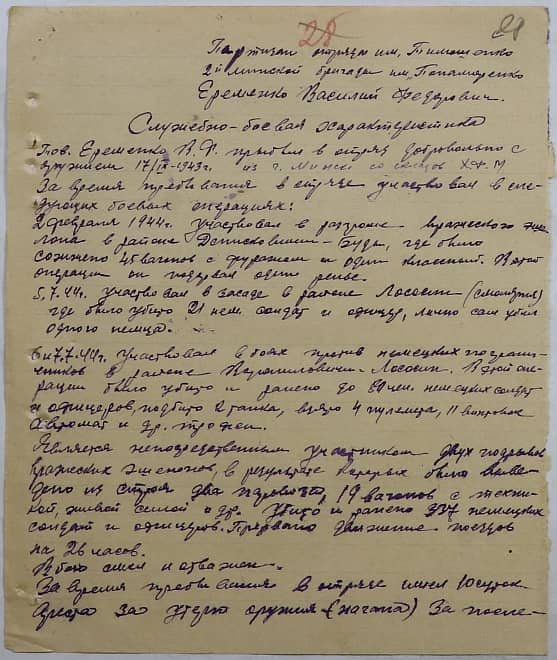 28
Партизан отряда им. Тимошенко
2й минской бригады им. Понамаренко
Еременко Василий Федорович.
Служебно-боевая характеристика
Тов. Еременко В. Ф. прибыл в отряд добровольно с
оружием 17/IX-1943г. из г. Минска со склада
За время пребывания в отряде участвовал в сле-
дующих боевых операциях:
2 февраля 1944г. участвовал в разгроме вражеского эше-
лона в районе Буды, где было
сожжено 45 вагонов с фуражем и один классный. В этой
операции он подорвал один рельс.
5.7.44г. участвовал в засаде в районе Лососин
где было убито 21 нем. солдат и офицер, лично сам убил
одного немца.
6 и 7.7.44г. участвовал в боях против немецких
в районе Лососин. В этой опе-
рации было убито и ранено до чел. немецких солдат
и офицеров, подбито 2 танка, взято 4 пулемета, 11 винтовок
автомат и др. трофеи.
Является непосредственным участником двух подрывов
вражеских эшелонов, в результате которых было выве-
дено из строя два паровоза, 19 вагонов с техни-
кой, живой силой и др. Убито и ранено 337 немецких
солдат и офицеров. Прервано движение поездов
на 26 часов.
В бою смел и отважен.
За время пребывания в отряде имел 10 суток
ареста за утерю оружия (нагана) За после-